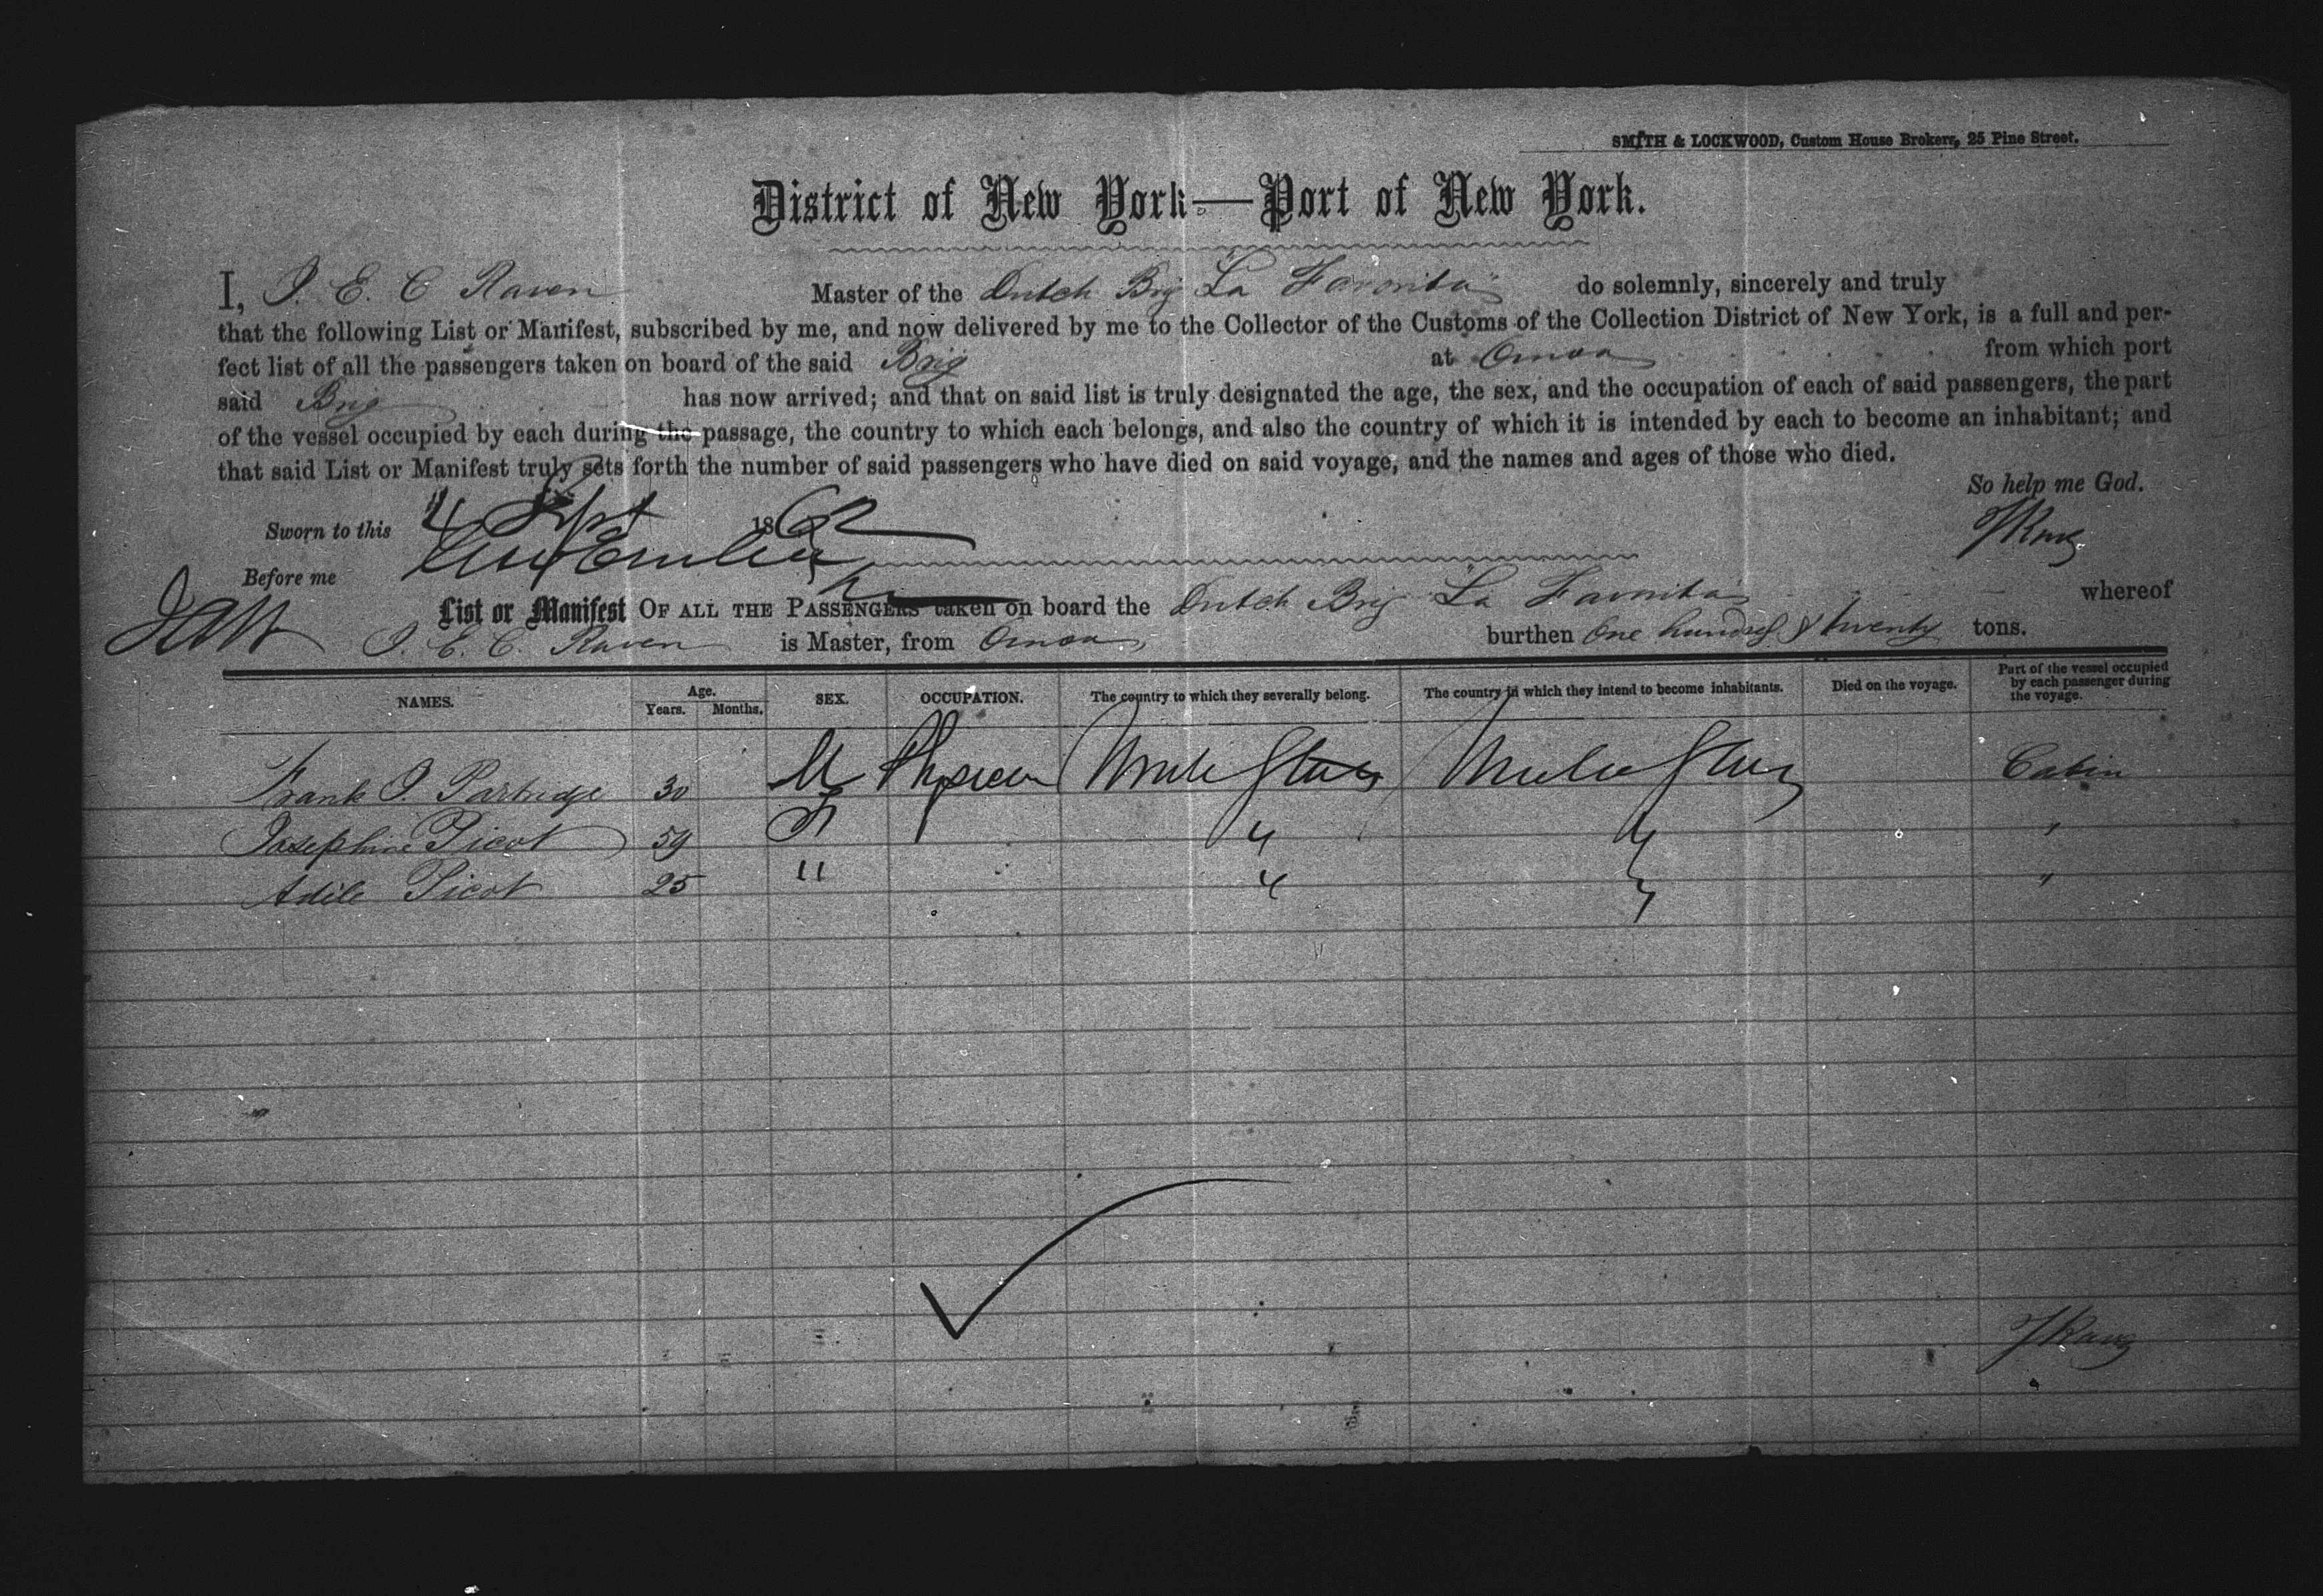 SMITH & LOCKWOOD, Custom House Brokers, 25 Pine Street.
District of New York—Port of New York.
I, J. E. C Raven Master of the Dutch Brig "La Favorita" do solemnly, sincerely and truly
that the following List or Manifest, subscribed by me, and now delivered by me to the Collector of the Customs of the Collection District of New York, is a full and per-
fect list of all the passengers taken on board of the said Brig at Omoa from which port
said Brig has now arrived; and that on said list is truly designated the age, the sex, and the occupation of each of said passengers, the part
of the vessel occupied by each during the passage, the country to which each belongs, and also the country of which it is intended by each to become an inhabitant; and
that said List or Manifest truly sets forth the number of said passengers who have died on said voyage, and the names and ages of those who died.
So help me God.
Sworn to this 4 Sept 1862
Before me
List or Manifest OF ALL THE PASSENGERS taken on board the Dutch Brig "La Favorita" whereof
J. E. C. Raven is Master, from Omoa, burthen One hundred & twenty tons.
NAMES. Age. Years. Months. SEX. OCCUPATION. The country to which they severally belong. The country in which they intend to become inhabitants. Died on the voyage. Part of the vessel occupied by each passenger during the voyage.
Frank J. Partridge 30 M Physician United States United States Cabin
Josephine Picot 59 F " " "
Adile Picot 25 " " " "